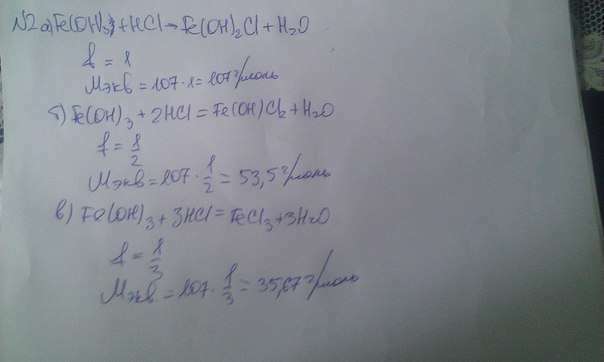 N2 а) Fe(OH)3 + HCl → Fe(OH)2Cl + H2O
f = 1
Mэкв = 107 · 1 = 107 г/моль
б) Fe(OH)3 + 2HCl = Fe(OH)Cl2 + H2O
f = 1/2
Mэкв = 107 · 1/2 = 53,5 г/моль
в) Fe(OH)3 + 3HCl = FeCl3 + 3H2O
f = 1/3
Mэкв = 107 · 1/3 = 35,67 г/моль